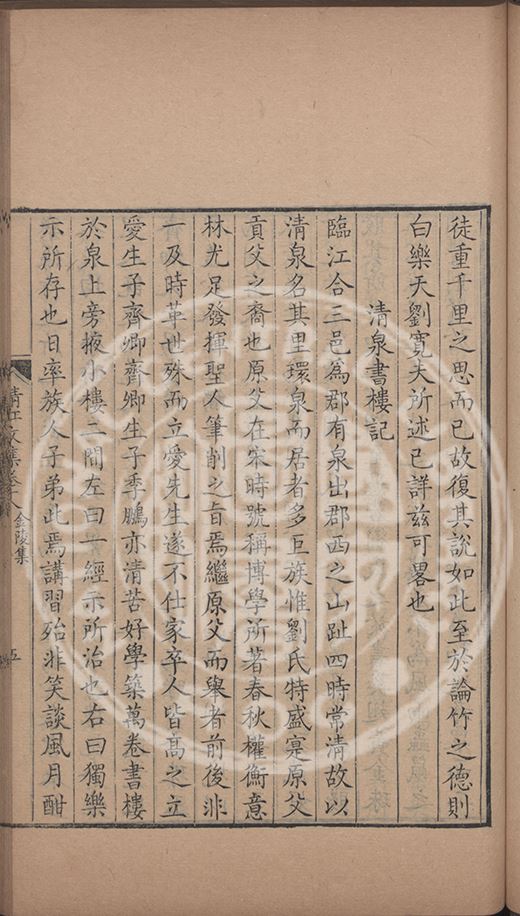 徒重千里之思而已故復其說如此至於論竹之德則
白樂天劉寛夫所述已詳兹可畧也
清泉書樓記
臨江合三邑爲郡有泉出郡西之山趾四時常清故以
清泉名其里環泉而居者多巨族惟劉氏特盛寔原父
貢父之裔也原父在宋時號稱博學所著春秋權衡意
林尤足發揮聖人筆削之旨焉繼原父而舉者前後非
一及時革世殊而立愛先生遂不仕家卒人皆高之立
愛生子齊卿齊卿生子季鵬亦清苦好學築萬卷書樓
於泉上旁掖小樓二間左曰一經示所治也右曰獨樂
示所存也日率族人子弟此焉講習殆非笑談風月酣
清江文集卷
金陵集
五